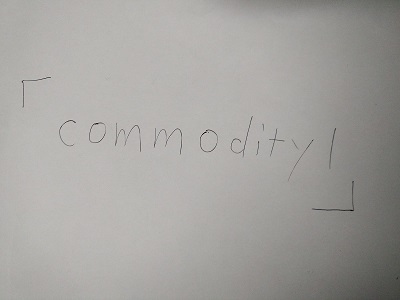 「commodity/」